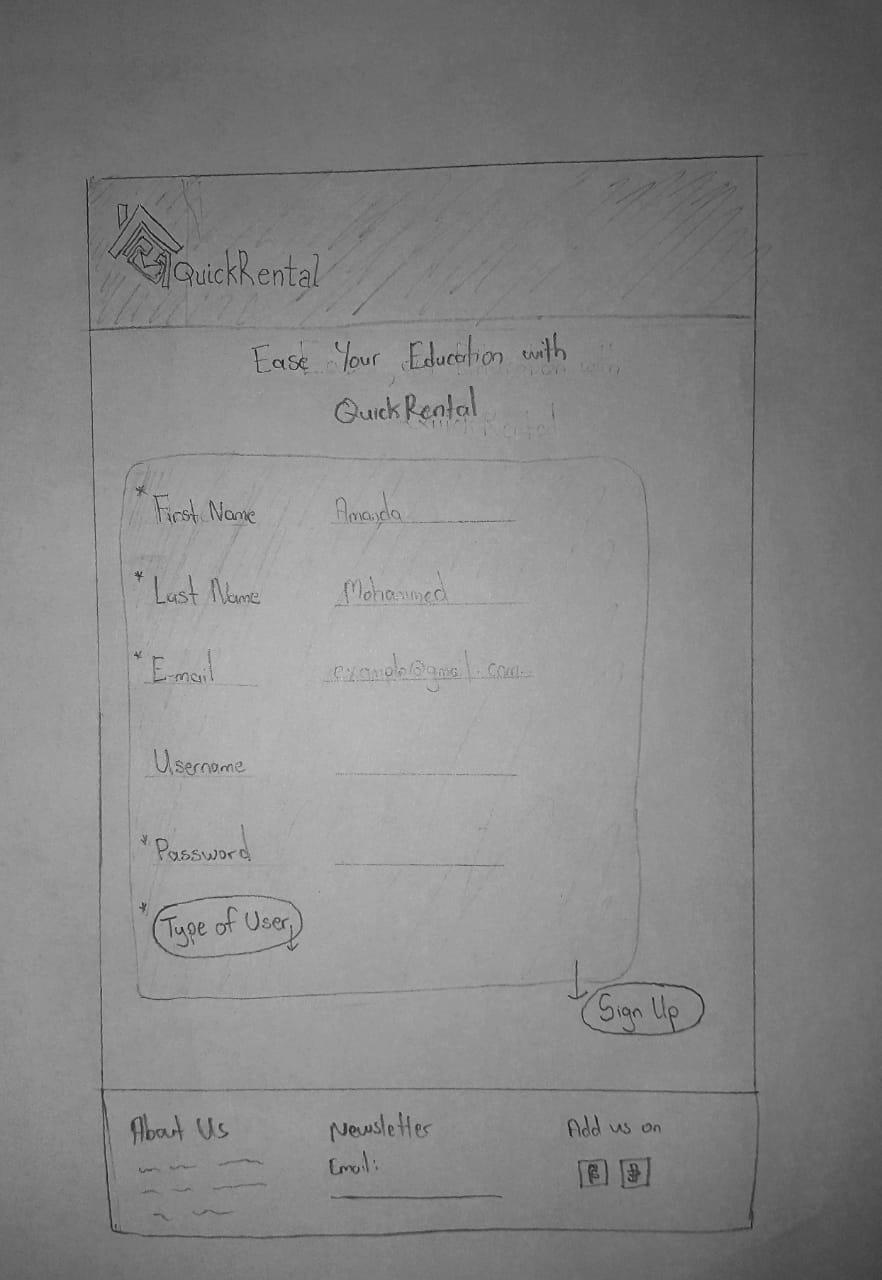 QuickRental
Ease Your Education with
QuickRental
* First Name Amanda
* Last Name Mohammed
* E-mail example@gmail.com
Username
* Password
* Type of User
Sign Up
About Us Newsletter Add us on
Email: